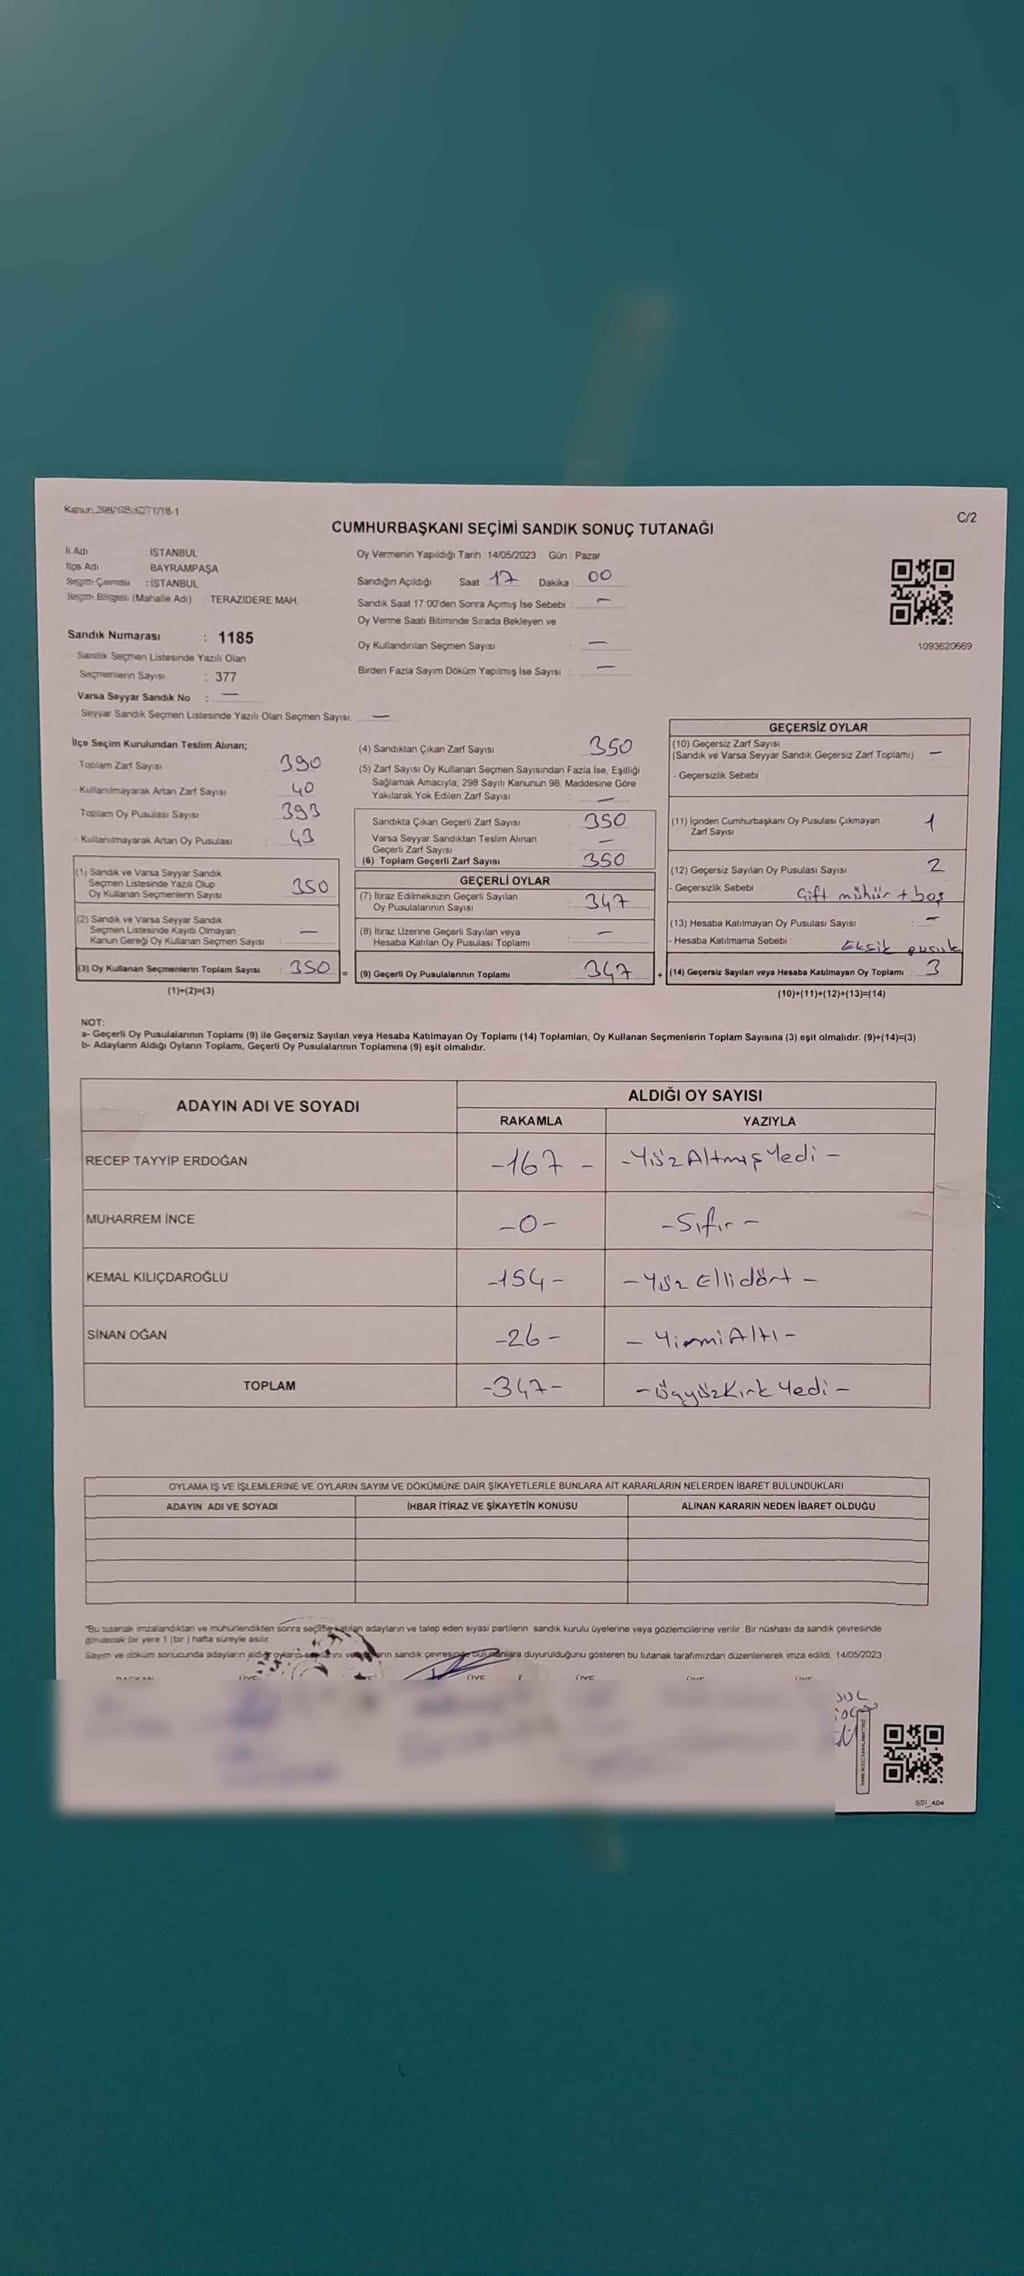 C/2
CUMHURBAŞKANI SEÇİMİ SANDIK SONUÇ TUTANAĞI
İl Adı İSTANBUL
İlçe Adı BAYRAMPAŞA
Seçim Çevresi : İSTANBUL
Seçim Bölgesi (Mahalle Adı) : TERAZİDERE MAH.
Sandık Numarası : 1185
Sandık Seçmen Listesinde Yazılı Olan
Seçmenlerin Sayısı : 377
Varsa Seyyar Sandık No : —
Seyyar Sandık Seçmen Listesinde Yazılı Olan Seçmen Sayısı —
Oy Vermenin Yapıldığı Tarih : 14/05/2023 Gün : Pazar
Sandığın Açıldığı Saat 17 Dakika 00
Sandık Saat 17:00'den Sonra Açımış İse Sebebi : —
Oy Verme Saati Bitiminde Sırada Bekleyen ve
Oy Kullandırılan Seçmen Sayısı : —
Birden Fazla Sayım Döküm Yapılmış İse Sayısı : —
1093620669
İlçe Seçim Kurulundan Teslim Alınan;
Toplam Zarf Sayısı : 390
- Kullanılmayarak Artan Zarf Sayısı : 40
Toplam Oy Pusulası Sayısı : 393
- Kullanılmayarak Artan Oy Pusulası : 43
(1) Sandık ve Varsa Seyyar Sandık
Seçmen Listesinde Yazılı Olup
Oy Kullanan Seçmenlerin Sayısı : 350
(2) Sandık ve Varsa Seyyar Sandık
Seçmen Listesinde Kayıtlı Olmayan
Kanun Gereği Oy Kullanan Seçmen Sayısı : —
(3) Oy Kullanan Seçmenlerin Toplam Sayısı : 350 =
(1)+(2)=(3)
(4) Sandıktan Çıkan Zarf Sayısı : 350
(5) Zarf Sayısı Oy Kullanan Seçmen Sayısından Fazla İse, Eşitliği
Sağlamak Amacıyla; 298 Sayılı Kanunun 98. Maddesine Göre
Yakılarak Yok Edilen Zarf Sayısı : —
Sandıkta Çıkan Geçerli Zarf Sayısı : 350
Varsa Seyyar Sandıktan Teslim Alınan
Geçerli Zarf Sayısı : —
(6) Toplam Geçerli Zarf Sayısı : 350
GEÇERLİ OYLAR
(7) İtiraz Edilmeksizin Geçerli Sayılan
Oy Pusulalarının Sayısı : 347
(8) İtiraz Üzerine Geçerli Sayılan veya
Hesaba Katılan Oy Pusulası Toplamı : —
(9) Geçerli Oy Pusulalarının Toplamı : 347 +
GEÇERSİZ OYLAR
(10) Geçersiz Zarf Sayısı
(Sandık ve Varsa Seyyar Sandık Geçersiz Zarf Toplamı) —
- Geçersizlik Sebebi :
(11) İçinden Cumhurbaşkanı Oy Pusulası Çıkmayan
Zarf Sayısı 1
(12) Geçersiz Sayılan Oy Pusulası Sayısı : 2
- Geçersizlik Sebebi : Çift mühür + boş
(13) Hesaba Katılmayan Oy Pusulası Sayısı : —
- Hesaba Katılmama Sebebi : Eksik pusula
(14) Geçersiz Sayılan veya Hesaba Katılmayan Oy Toplamı : 3
(10)+(11)+(12)+(13)=(14)
NOT:
a- Geçerli Oy Pusulalarının Toplamı (9) ile Geçersiz Sayılan veya Hesaba Katılmayan Oy Toplamı (14) Toplamları, Oy Kullanan Seçmenlerin Toplam Sayısına (3) eşit olmalıdır. (9)+(14)=(3)
b- Adayların Aldığı Oyların Toplamı, Geçerli Oy Pusulalarının Toplamına (9) eşit olmalıdır.
ADAYIN ADI VE SOYADI ALDIĞI OY SAYISI
RAKAMLA YAZIYLA
RECEP TAYYİP ERDOĞAN -167- -Yüz Altmış Yedi-
MUHARREM İNCE -0- -Sıfır-
KEMAL KILIÇDAROĞLU -154- -Yüz Ellidört-
SİNAN OĞAN -26- -Yirmi Altı-
TOPLAM -347- -Üçyüz Kırk Yedi-
OYLAMA İŞ VE İŞLEMLERİNE VE OYLARIN SAYIM VE DÖKÜMÜNE DAİR ŞİKAYETLERLE BUNLARA AİT KARARLARIN NELERDEN İBARET BULUNDUKLARI
ADAYIN ADI VE SOYADI İHBAR İTİRAZ VE ŞİKAYETİN KONUSU ALINAN KARARIN NEDEN İBARET OLDUĞU
*Bu tutanak imzalandıktan ve mühürlendikten sonra seçime katılan adayların ve talep eden siyasi partilerin sandık kurulu üyelerine veya gözlemcilerine verilir. Bir nüshası da sandık çevresinde
görülecek bir yere 1 (bir) hafta süreyle asılır.
Sayım ve döküm sonucunda adayların aldığı oyların sandık çevresinde duyurulduğunu gösteren bu tutanak tarafımızdan düzenlenerek imza edildi. 14/05/2023
SSI_404